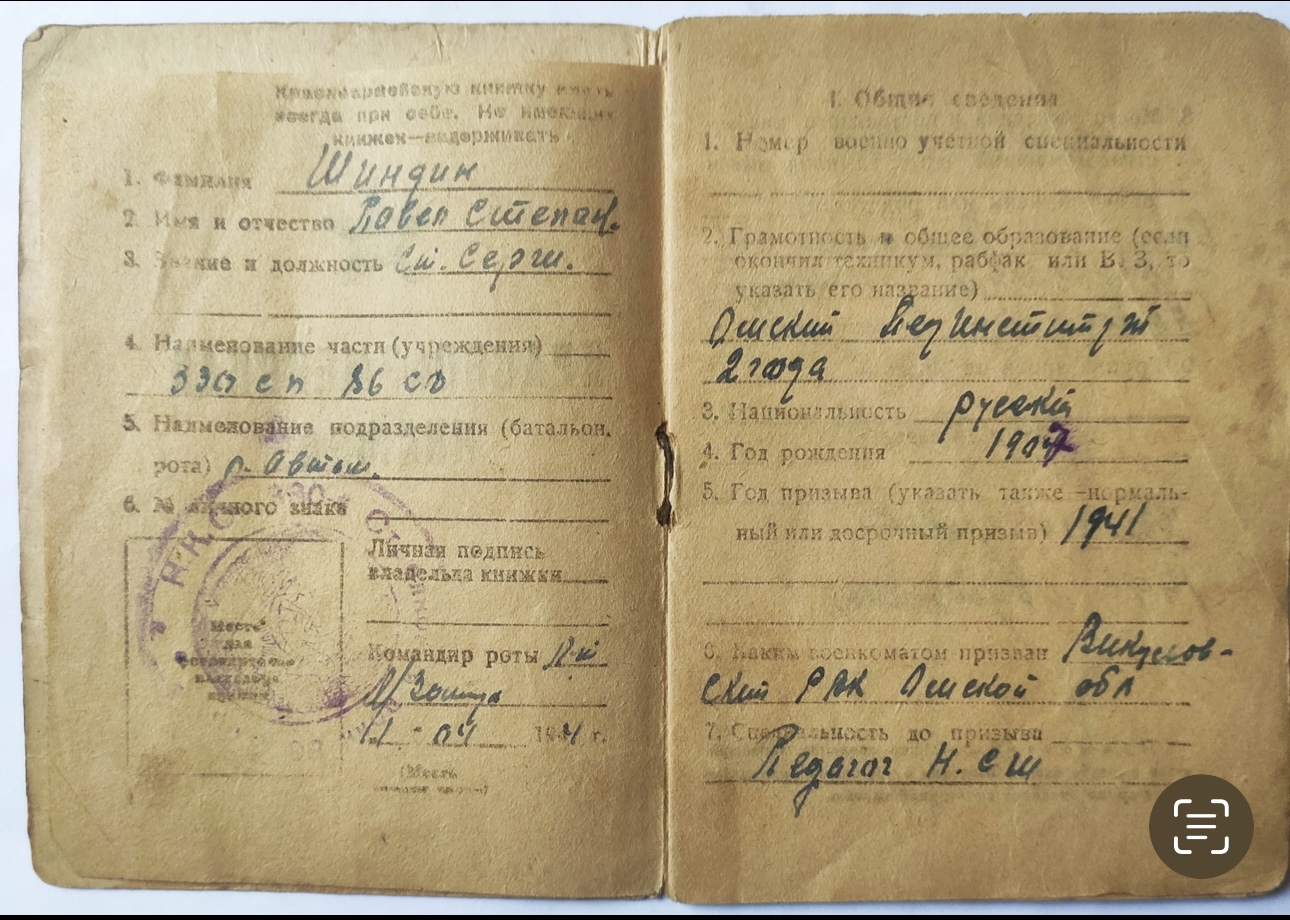 Красноармейскую книжку иметь
всегда при себе. Не имеющих
книжек—задерживать
1. Фамилия Шиндин
2. Имя и отчество Павел Степан.
3. Звание и должность Ст. Серж.
4. Наименование части (учреждения)
330 сп 86 сд
5. Наименование подразделения (батальон,
рота) р. Автом.
6. № личного знака
Личная подпись
владельца книжки
Место
для
владельца
книжки
Командир роты Л-т
11 - 04 1944 г.
(Место
Н.К.О.
I. Общие сведения
1. Номер военно учетной специальности
2. Грамотность и общее образование (если
окончил техникум, рабфак или ВУЗ, то
указать его название)
Омский Пединститут
2 года
3. Национальность русский
4. Год рождения 1907
5. Год призыва (указать также —нормаль-
ный или досрочный призыв) 1941
6. Каким военкоматом призван Викулов-
ский РВК Омской обл
7. Специальность до призыва
Педагог Н. С Ш